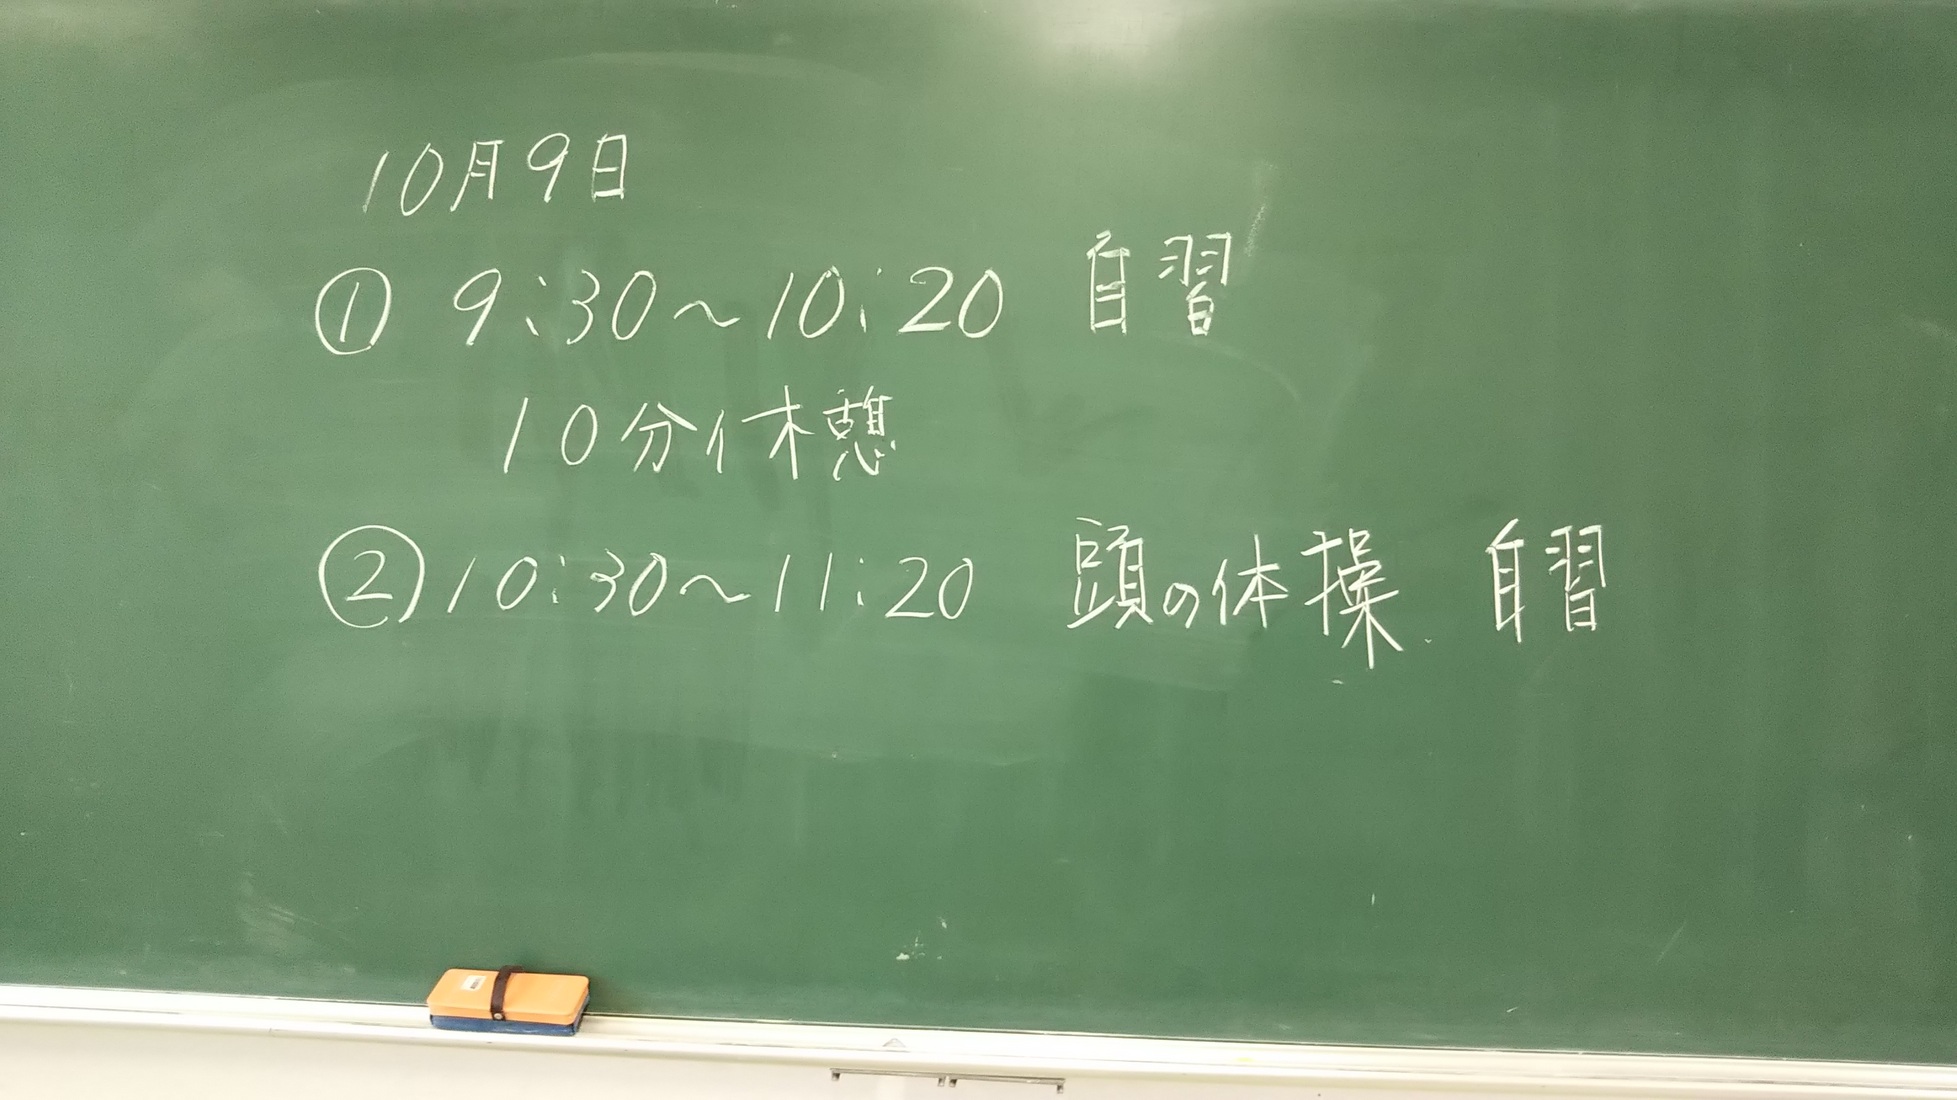 10月9日
① 9:30〜10:20 自習
10分休憩
② 10:30〜11:20 頭の体操. 自習